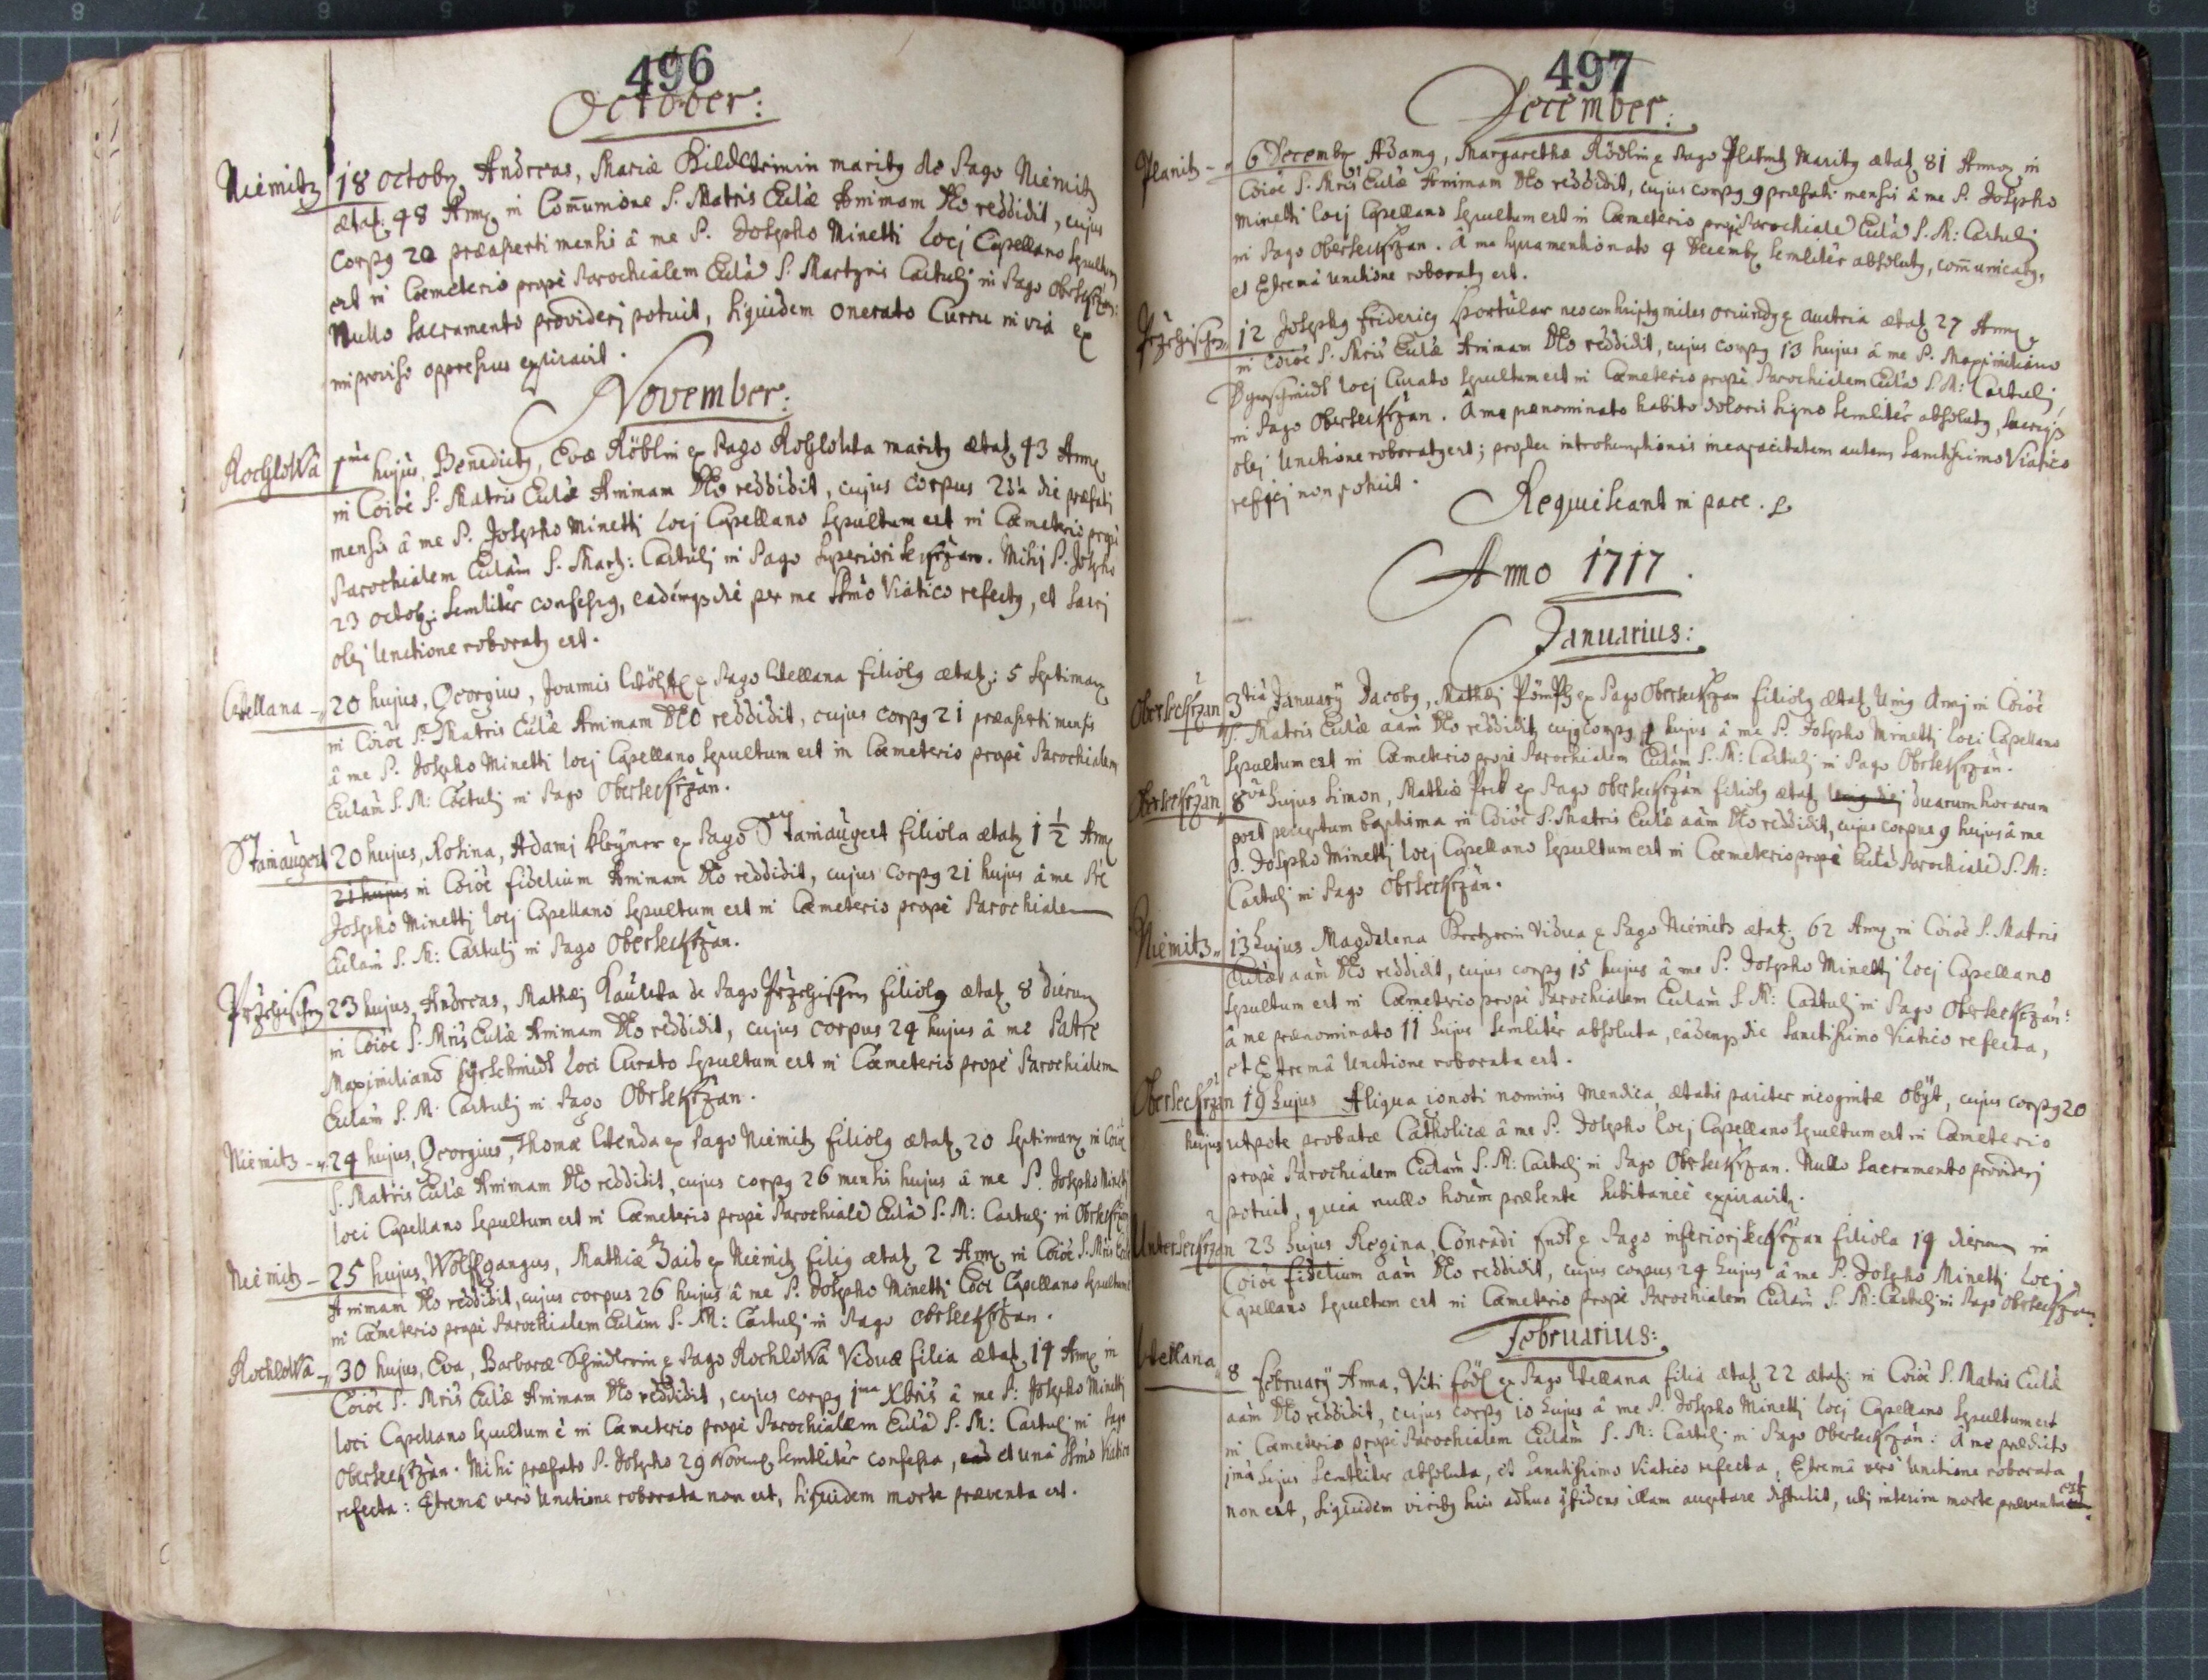 496
October:
Niemitz 18 octobr, Andreas, Mariæ Bildstrinin marity de Pago Niemitz
ætat: 48 Annr in Com̅unione S. Matris Eccl̃æ Animam Dẽo reddidit, cujus
Corpg 20 præaserti mensis â me P. Josepho Minetti locj Capellano sepultum
est in Cœmeterio propè Parochialem Eccl̃ã S. Martyris Castulj in Pago Obersekrzan:
Nullo Sacramento providerj potuit, siquidem onerato Curru in viâ ex
improviso oppressus expiravit.
November:
Rochlowa 1ma hujus, Benedicty, Evæ Röblin ex Pago Rochlowa marity ætat. 43 Annr
in Cõiõe S. Matris Eccl̃æ Animam Dẽo reddidit, cujus corpus 2da die præfatj
mensis â me P. Josepho Minettj locj Capellano sepultum est in Cœmeterio propè
Parochialem Eccl̃am S. Mart: Castulj in Pago superiori sekrzan. Mihj P. Josepho
23 octob: semliter confessg, eâdemqs die per me Ssmo Viatico refecty, et sacrj
olej Unctione roboraty est.
Wellana 20 hujus, Georgius, Joannis ex Pago Wellana filiolg ætat: 5 septimanr
in Cõiõe S. Matris Eccl̃æ Animam Dẽo reddidit, cujus corpg 21 præaserti mensis
â me P. Josepho Minetti locj Capellano sepultum est in Cœmeterio propè Parochialem
Eccl̃am S. M: Castulj in Pago Oberseckrzan.
Staniaugert 20 hujus, Rosina, Adamj Kleyner ex Pago Staniaugert filiola ætat. 1 1/2 Annr
21 hujus in Cõiõe fidelium Animam Dẽo reddidit, cujus Corpg 21 hujus â me Pre
Josepho Minettj locj Capellano sepultum est in Cœmeterio propè Parochialem
Eccl̃am S. M: Castulj in Pago Oberseckrzan.
Przehischen 23 hujus, Andreas, Mathej Kauleta de Pago Przehischen filiolg ætat. 8 dierum
in Cõiõe S. Mris Eccl̃æ Animam Dẽo reddidit, cujus corpus 24 hujus â me Patre
Maximiliano loci Curato sepultum est in Cœmeterio propè Parochialem
Eccl̃am S. M. Castulj in Pago Obersekrzan.
Niemitz 24 hujus, Georgius, Thomæ Wenda ex Pago Niemitz filiolg ætat. 20 septimanr in Cõiõe
S. Matris Eccl̃æ Animam Dẽo reddidit, cujus corpg 26 mensis hujus â me P. Josepho Minetj
loci Capellano sepultum est in Cœmeterio propè Parochialẽ Eccl̃ã S. M: Castulj in Obersekrzan
Niemitz 25 hujus, Wolffgangus, Mathiæ Zaib ex Niemitz filig ætat. 2 Annr in Cõiõe S. Mris Eccl̃æ
Animam Dẽo reddidit, cujus corpus 26 hujus â me P. Josepho Minetti Loci Capellano sepultum
in Cœmeterio propè Parochialem Eccl̃am S. M: Castulj in Pago Oberseckrzan.
Rochlowa 30 hujus, Eva, Barbaræ Schindlerin ex Pago Rochlowa Viduæ filia ætat. 14 Annr in
Cõiõe S. Mris Eccl̃æ Animam Dẽo reddidit, cujus corpg 1ma Xbris â me P: Josepho Minettj
loci Capellano sepultum ẽ in Cœmeterio propè Parochialem Eccl̃ã S. M: Castulj in Pago
Oberseckrzan. Mihi præfato P. Josepho 29 Novembr semliter confessa, ead et unâ Ssmo Viatico
refecta: Extremâ verò Unctione roborata non est, siquidem morte præventa est.
497
December:
Planitz 6 Decembr Adamg, Margarethæ Rödlin ex Pago Planitz Marity ætat. 81 Annor in
Cõiõe S. Mris Eccl̃æ Animam Dẽo reddidit, cujus corpg 9 præfati mensis â me P. Josepho
Minetti locj Capellano sepultum est in Cœmeterio propè Parochialẽ Eccl̃ã S. M: Castulj
in Pago Oberseckrzan. Â me supramentionato 4 Decembr semliter absoluty, com̅unicaty,
et Extremâ Unctione roboraty est.
Przehischen 12 Josephg Fridericg Portular neoconscripty miles oriundg ex Austria ætat. 27 Annr
in Cõiõe S. Mris Eccl̃æ Animam Dẽo reddidit, cujus corpg 13 hujus â me P. Maximiliano
locj Curato sepultum est in Cœmeterio propè Parochialem Eccl̃ã S. M: Castulj
in Pago Oberseckrzan. Â me prænominato habito doloris signo semliter absoluty, sacrijs
olej Unctione roboratg est; propter introsumptionis incapacitatem autem Sanctissimo Viatico
reficj non potuit.
Requiescant in pace.
Anno 1717.
Januarius:
Oberseckrzan 3tia Januarij Jacobg, Mathej ex Pago Oberseckrzan filiolg ætat. Unig Annj in Cõiõe
S. Matris Eccl̃æ aãm Dẽo reddidit, cujg corpg hujus â me P. Josepho Minettj loci Capellano
sepultum est in Cœmeterio propè Parochialem Eccl̃am S. M: Castulj in Pago Obersekrzan.
Oberseckrzan 8va hujus Simon, Mathiæ ex Pago Oberseckrzan filiolg ætat. duarum horarum
post perceptum baptisma in Cõiõe S. Matris Eccl̃æ aãm Dẽo reddidit, cujus corpus 9 hujus â me
P. Josepho Minettj locj Capellano sepultum est in Cœmeterio propè Eccl̃ã Parochialẽ S. M:
Castulj in Pago Oberseckrzan.
Niemitz 13 hujus Magdalena Vidua ex Pago Niemitz ætat. 62 Annr in Cõiõe S. Matris
Eccl̃æ aãm Dẽo reddidit, cujus corpg 15 hujus â me P. Josepho Minettj locj Capellano
sepultum est in Cœmeterio propè Parochialem Eccl̃am S. M: Castulj in Pago Oberseckrzan:
â me prænominato 11 hujus semliter absoluta, eâdemqs die Sanctissimo Viatico refecta,
et Extremâ Unctione roborata est.
Oberseckrzan 19 hujus Aliqua ignoti nominis Mendica, ætatis pariter incognitæ obijt, cujus corpg 20
hujus utpote probatæ Catholicæ â me P. Josepho locj Capellano sepultum est in Cœmeterio
propè Parochialem Eccl̃am S. M: Castulj in Pago Oberseckrzan. Nullo Sacramento providerj
potuit, quia nullo hoĩum præsente subitaneè expiravit.
Unterseckrzan 23 hujus Regina, Conradi ex Pago inferiorj seckrzan filiola 19 dierum in
Cõiõe fidelium aãm Dẽo reddidit, cujus corpus 24 hujus â me P. Josepho Minettj locj
Capellano sepultum est in Cœmeterio propè Parochialem Eccl̃am S. M: Castulj in Pago Oberseckrzan
Februarius:
Wellana 8 Februarij Anna, Viti ex Pago Wellana filia ætat. 22 ætat: in Cõiõe S. Matris Eccl̃æ
aãm Dẽo reddidit, cujus corpg 10 hujus â me P. Josepho Minettj locj Capellano sepultum est
in Cœmeterio propè Parochialem Eccl̃am S. M: Castulj in Pago Oberseckrzan: Â me prædicto
1mâ hujus semliter absoluta, et Sanctissimo Viatico refecta, Extremâ verò Unctione roborata
non est, siquidem viribg suis adhuc illam distulit, ubj interim morte præventa est.